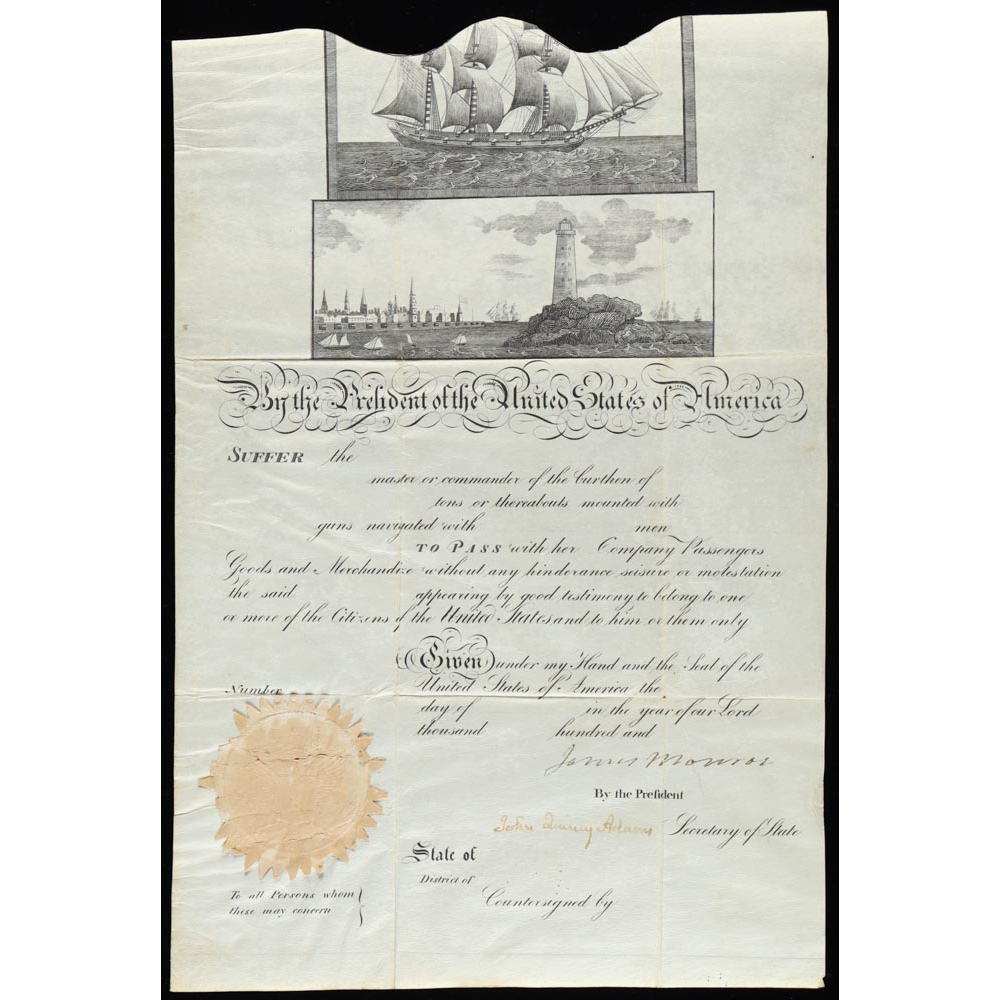 By the President of the United States of America
SUFFER the
master or commander of the burthen of
tons or thereabouts mounted with
guns navigated with men
TO PASS with her Company Passengers
Goods and Merchandize without any hinderance seisure or molestation
the said appearing by good testimony to belong to one
or more of the Citizens of the United States and to him or them only
Given under my Hand and the Seal of the
Number United States of America the
day of in the year of our Lord
thousand hundred and
James Monroe
By the Preſident
John Quincy Adams Secretary of State
State of
District of
To all Persons whom Countersigned by
these may concern